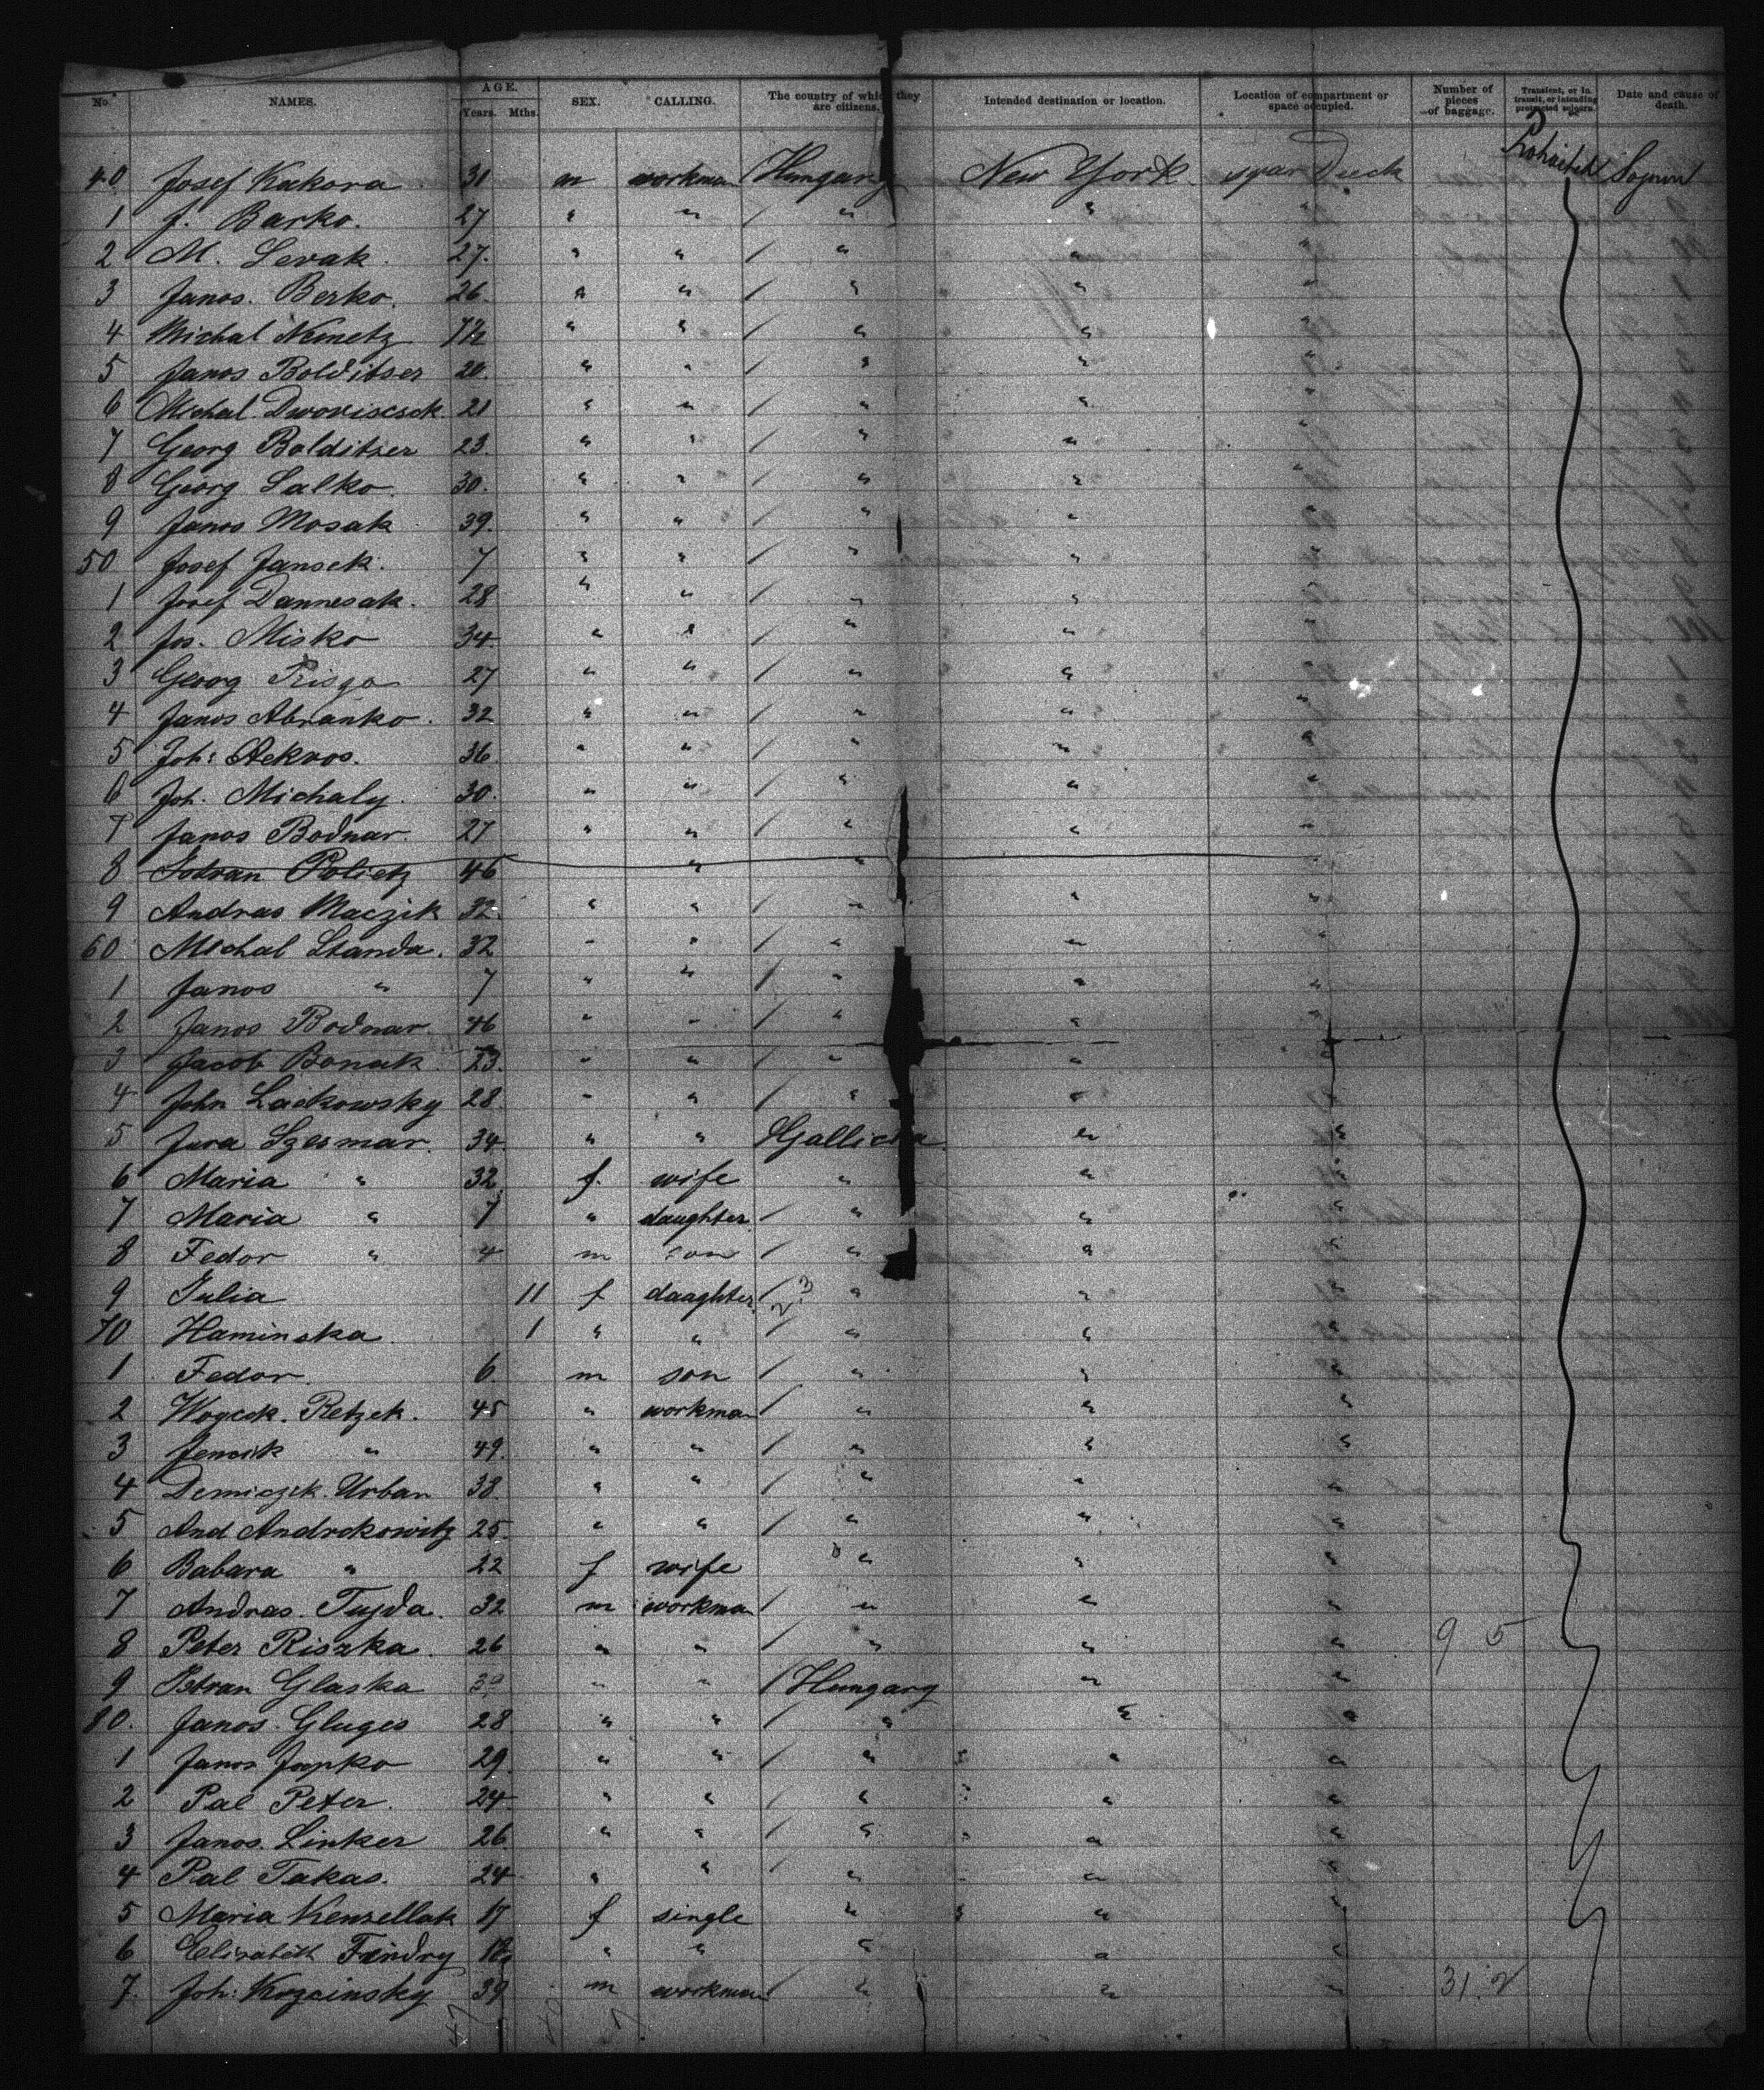 No. NAMES. AGE. Years. Mths. SEX. CALLING. The country of which they are citizens. Intended destination or location. Location of compartment or space occupied. Number of pieces of baggage. Transient, or in transit, or intending protracted sojourn. Date and cause of death.
40 Josef Kakora 31 m workman Hungary New York spar Deck
1 J. Barko. 27 " " " " "
2 M. Levak 27. " " " " "
3 Janos. Berko. 26. " " " " "
4 Michal Nemetz " " " " "
5 Janos Bolditser 20. " " " " "
6 Michal Dworiscsok 21 " " " " "
7 Georg Bolditser 23. " " " " "
8 Georg Salko. 30. " " " " "
9 Janos Mosak 39. " " " " "
50 Josef Jansek. 7 " " " " "
1 Josef Dannesak. 28 " " " " "
2 Jos. Misko 34. " " " " "
3 Georg 27 " " " " "
4 Janos Abranko. 32 " " " " "
5 Joh: 36. " " " " "
6 Joh. Michaly. 30. " " " " "
7 Janos Bodnar. 27 " " " " "
8 Polietz 46 " "
9 Andras Maczik 32. " " " " "
60 Michal Standa. 32 " " " " "
1 Janos " 7 " " " " "
2 Janos Bodnar. 46 " " " " "
3 Jacob Bonak. 23. " " " "
4 John Lackowsky 28 " " " " "
5 Jura Szesmar. 34 " " Gallicia " "
6 Maria " 32 f. wife " " "
7 Maria " 7 " daughter " " "
8 Fedor " 4 m son " " "
9 Julia 11 f daaghter " " "
70 Haminska. 1 " " " " "
1 Fedor. 6. m son " " "
2 Retzek. 45 " workman " " "
3 " 49. " " " " "
4 Demiczik. Urban 38. " " " " "
5 And Androkowitz 25. " " " " "
6 Babara " 22 f wife " " "
7 Andras. Tujda. 32 m workman " " "
8 Peter Riszka. 26 " " " " " 9 5
9 Glaska " " Hungary " "
80. Janos. Gluges 28 " " " " "
1 Janos 29. " " " " "
2 Pal Peter. 24. " " " " "
3 Janos. Linker 26 " " " " "
4 Pal Takas. 24 " " " " "
5 Maria Kenzellak 17 f single " " "
6 Elisabeth 18 " " " " "
7. Joh: 39 m workman " " "